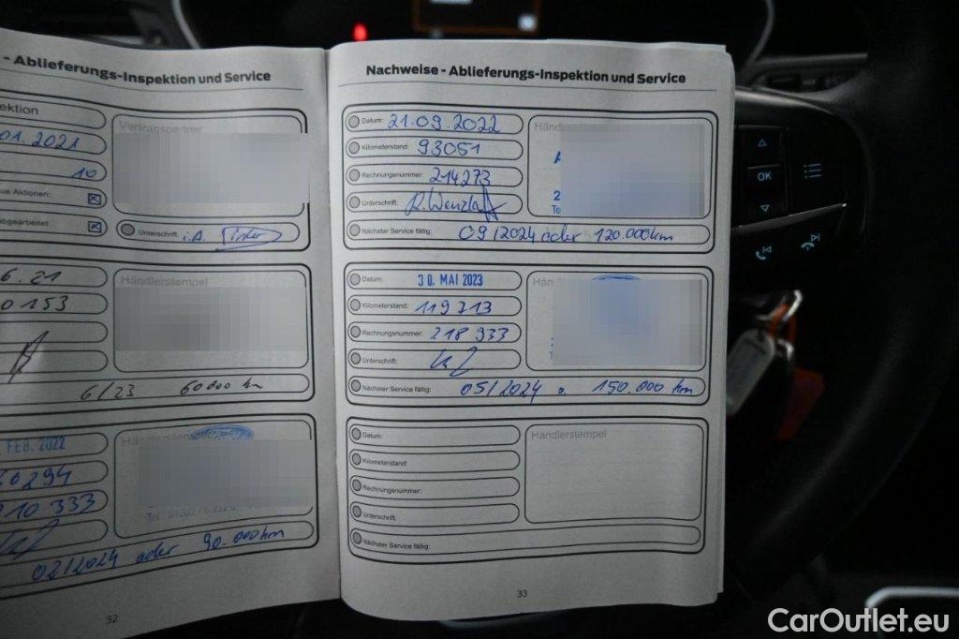 - Ablieferungs-Inspektion und Service
ektion
01.2021
Vertragspartner
10
ue Aktionen:
bgearbeitet:
Unterschrift: i.A.
6.21
Händlerstempel
0153
6/23 60000 km
FEB. 2022
Händlerstempel
60294
210 333
02/2024 oder 90.000km
32
Nachweise - Ablieferungs-Inspektion und Service
Datum: 21.09.2022
Händ
Kilometerstand: 93051
Rechnungsnummer: 214273
2
Unterschrift: R. Wenzlaff
Te
Nächster Service fällig: 09/2024 oder 120.000km
Datum: 30. MAI 2023
Hän
Kilometerstand: 119713
Rechnungsnummer: 218 933
Unterschrift:
Nächster Service fällig: 05/2024 o. 150.000 km
Datum:
Händlerstempel
Kilometerstand:
Rechnungsnummer:
Unterschrift:
Nächster Service fällig:
33
OK
CarOutlet.eu